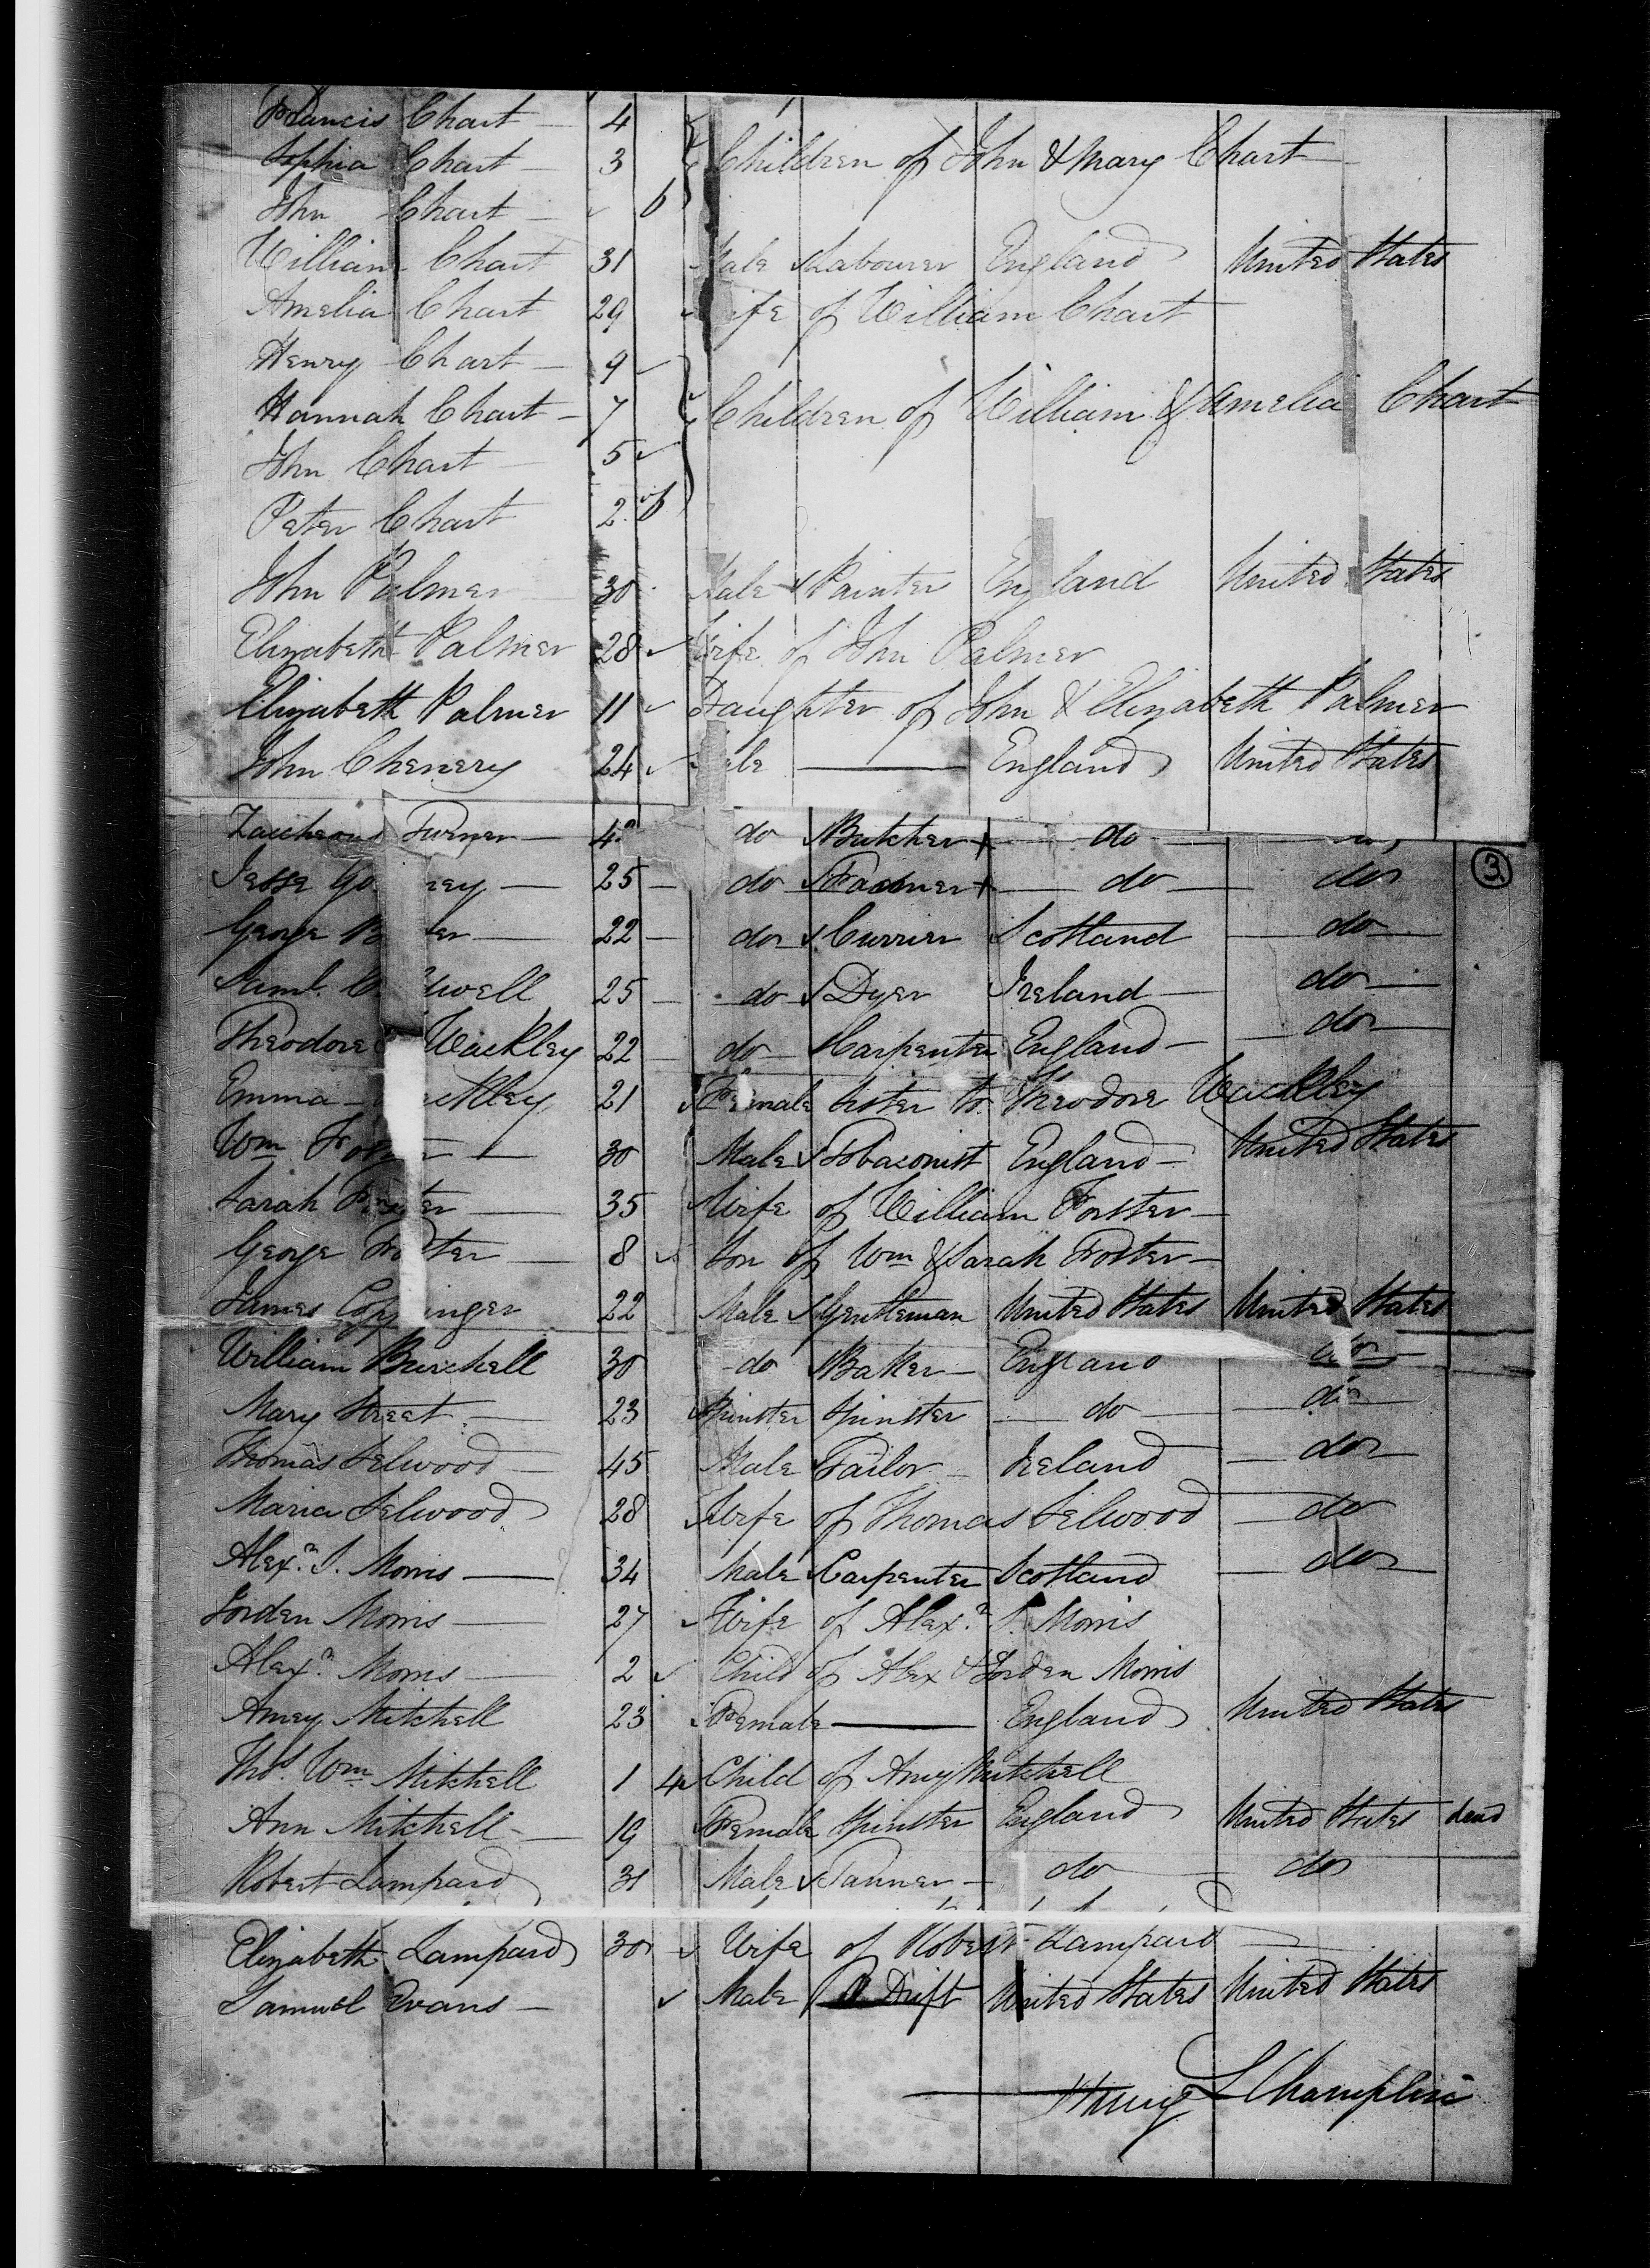 Francis Chart 4
Sophia Chart 3 Children of John & Mary Chart
John Chart 6
William Chart 31 Male Labourer England United States
Amelia Chart 29 Wife of William Chart
Henry Chart 9
Hannah Chart 7 Children of William & Amelia Chart
John Chart 5
Peter Chart 2 6
John Palmer 30 Male Painter England United States
Elizabeth Palmer 28 Wife of John Palmer
Elizabeth Palmer 11 Daughter of John & Elizabeth Palmer
John Chenery 24 Male England United States
Turner do Butcher do
Jesse 25 do Farmer do do
George 22 do Currier Scotland do
Saml. 25 do Dyer Ireland do
Theodore Wackley 22 do Carpenter England do
Emma 21 Female Sister to Theodore Wackley
Wm 30 Male Tobaconist England United States
Sarah 35 Wife of William Forster
George 8 Son of Wm & Sarah Foster
James 22 Male Gentleman United States United States
William Burchell 30 do Baker England do
Mary Street 23 Spinster Spinster do do
Thomas Selwood 45 Male Tailor Ireland do
Maria Selwood 28 Wife of Thomas Selwood do
Alexr. S. Morris 34 Male Carpenter Scotland do
Jorden Morris 27 Wife of Alexr. S. Morris
Alexr. Morris 2 Child of Alex & Jorden Morris
Amey Mitchell 23 Female England United States
Thos. Wm Mitchell 1 4 Child of Amy Mitchell
Ann Mitchell 19 Female Spinster England United States dead
Robert Lampard 31 Male Tanner do do
Elizabeth Lampard 30 Wife of Robert Lampard
Samuel Evans Male Drift United States United States
Henry L Champlin
3